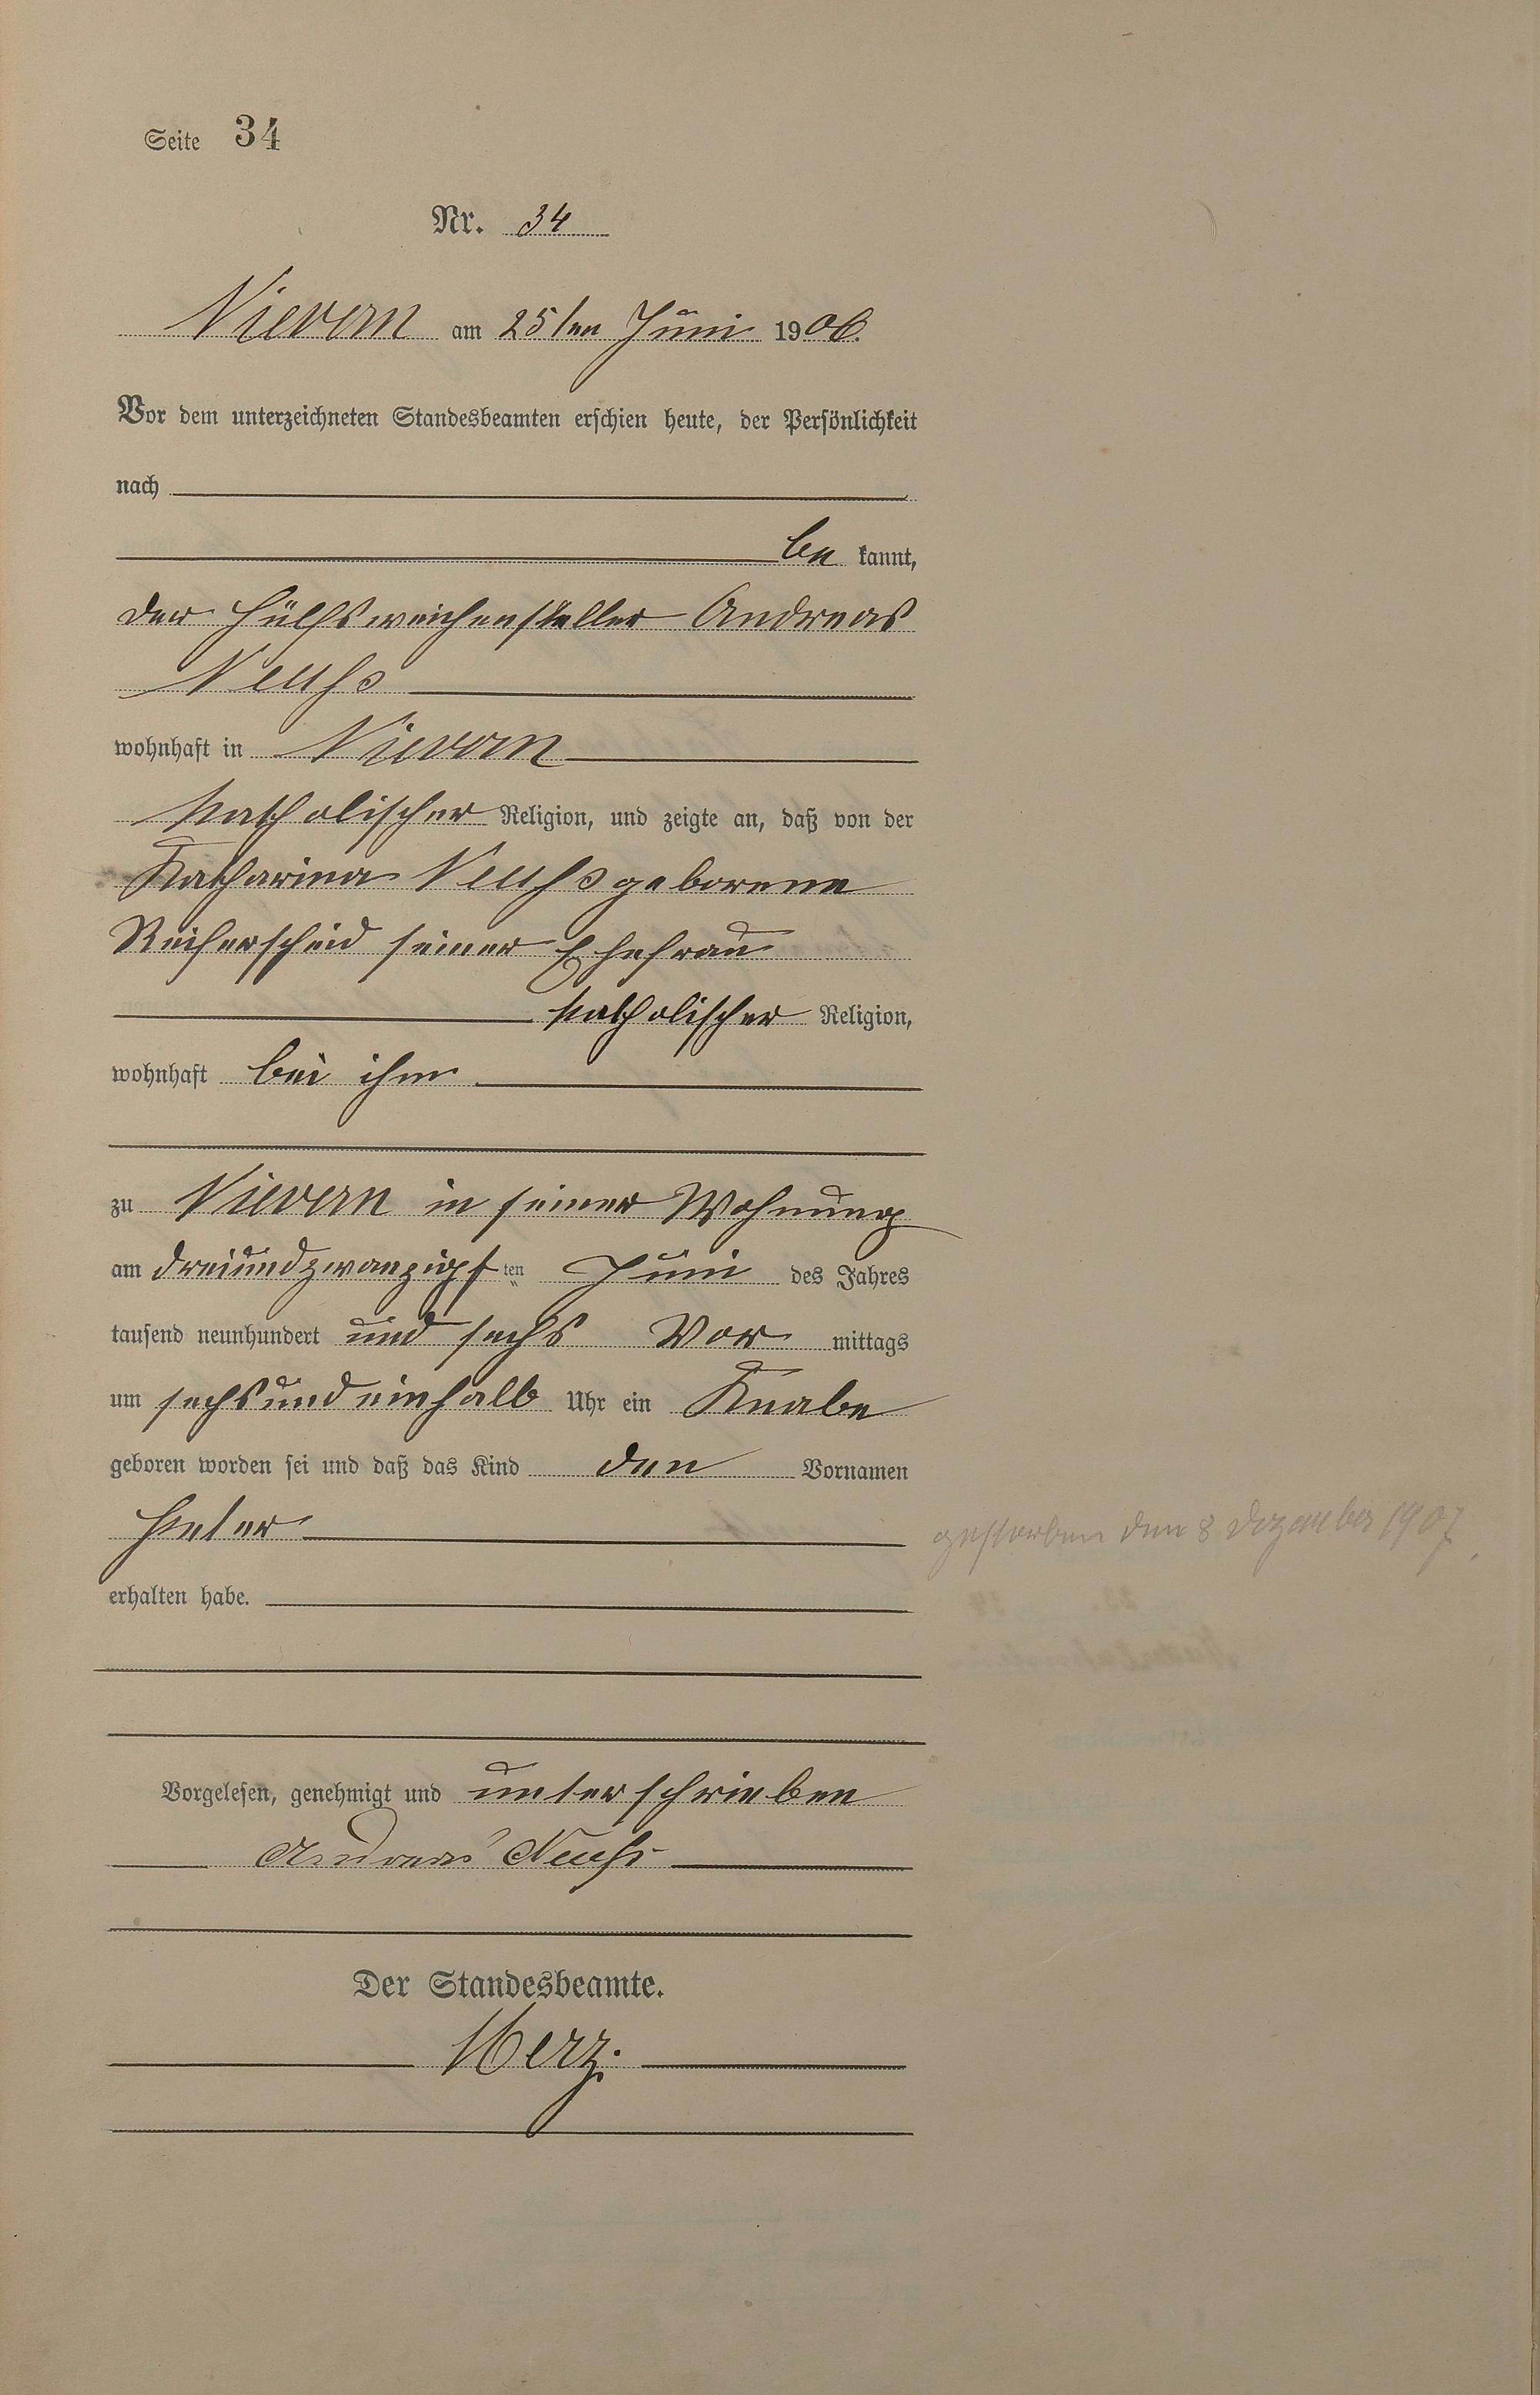 Seite 34
Nr. 34
Nievern am 25ten Juni 1906.
Vor dem unterzeichneten Standesbeamten erschien heute, der Persönlichkeit
nach
be kannt,
der Hülfsweichensteller Andreas
Neuhs
wohnhaft in Nievern
katholischer Religion, und zeigte an, daß von der
Katharina Neuhs geborene
Reiferscheid seiner Ehefrau
katholischer Religion,
wohnhaft bei ihm
zu Nievern in seiner Wohnung
am dreiundzwanzigsten Juni des Jahres
tausend neunhundert und sechs Vor mittags
um sechsundeinhalb Uhr ein Knabe
geboren worden sei und daß das Kind den Vornamen
Peter
gestorben den 8 Dezember 1907.
erhalten habe.
Vorgelesen, genehmigt und unterschrieben
Andreas Neuhs
Der Standesbeamte.
Merz.